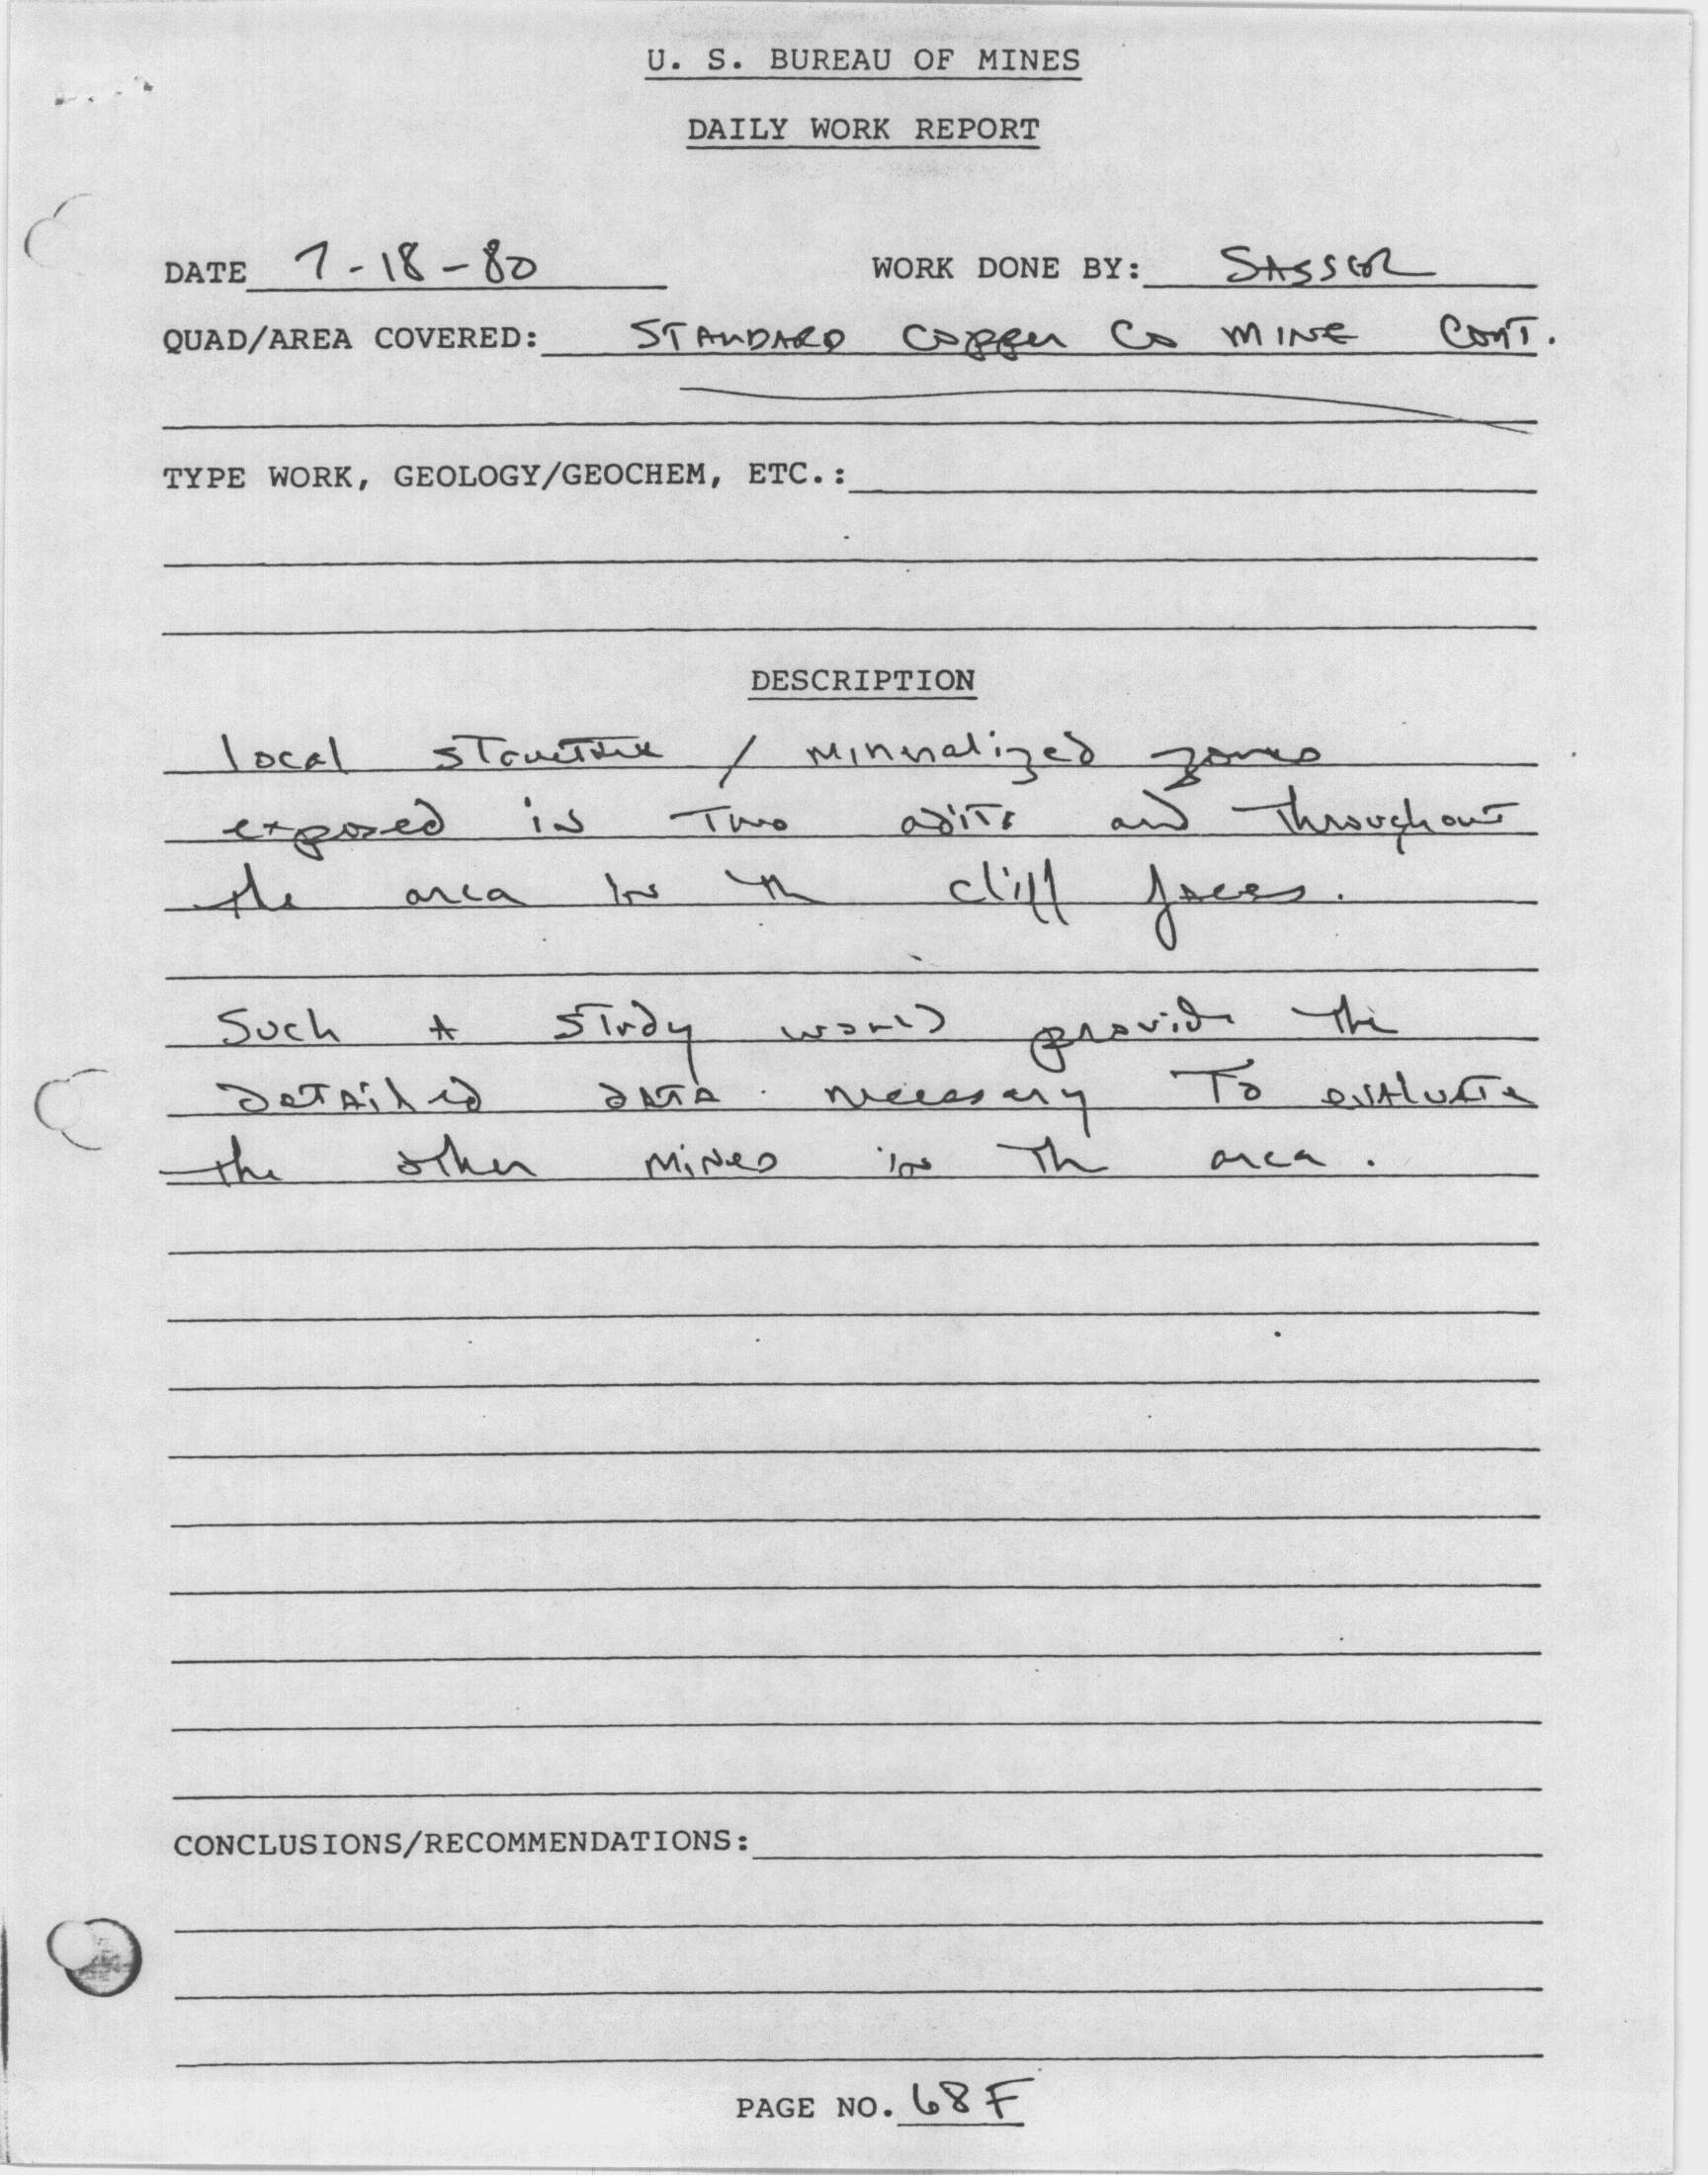 U. S. BUREAU OF MINES
DAILY WORK REPORT
DATE 7-18-80 WORK DONE BY: SASSER
QUAD/AREA COVERED: STANDARD Copper Co MINE CONT.
TYPE WORK, GEOLOGY/GEOCHEM, ETC.:
DESCRIPTION
local structure / mineralized zones
exposed in two adits and throughout
the area in the cliff faces.
Such A study would provide the
Detailed data necessary To evaluate
the other mines in the area.
CONCLUSIONS/RECOMMENDATIONS:
PAGE NO. 68F